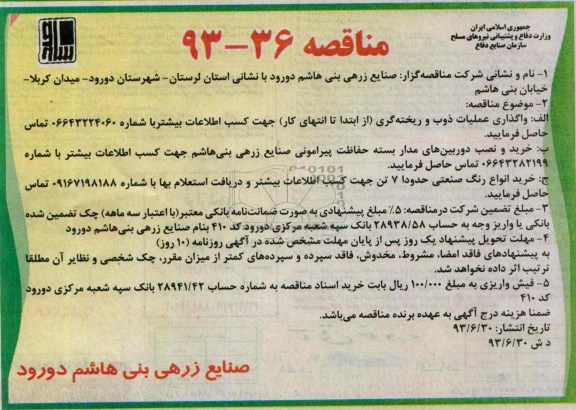 جمهوری اسلامی ایران
وزارت دفاع و پشتیبانی نیروهای مسلح
سازمان صنایع دفاع
مناقصه ۳۶-۹۳
ساصد
۱- نام و نشانی شرکت مناقصه‌گزار: صنایع زرهی بنی هاشم دورود با نشانی استان لرستان- شهرستان دورود- میدان کربلا-
خیابان بنی هاشم
۲- موضوع مناقصه:
الف: واگذاری عملیات ذوب و ریخته‌گری (از ابتدا تا انتهای کار) جهت کسب اطلاعات بیشتربا شماره ۰۶۶۴۳۲۲۴۰۶۰ تماس
حاصل فرمایید.
ب: خرید و نصب دوربین‌های مدار بسته حفاظت پیرامونی صنایع زرهی بنی‌هاشم جهت کسب اطلاعات بیشتر با شماره
۰۶۶۴۳۲۸۲۱۹۹ تماس حاصل فرمایید.
ج: خرید انواع رنگ صنعتی حدودا ۷ تن جهت کسب اطلاعات بیشتر و دریافت استعلام بها با شماره ۰۹۱۶۷۱۹۸۱۸۸ تماس
حاصل فرمایید.
۳- مبلغ تضمین شرکت درمناقصه: ۵٪ مبلغ پیشنهادی به صورت ضمانت‌نامه بانکی معتبر(با اعتبار سه ماهه) چک تضمین شده
بانکی یا واریز وجه به حساب ۲۸۹۳۸/۵۸ بانک سپه شعبه مرکزی دورود کد ۴۱۰ بنام صنایع زرهی بنی‌هاشم دورود
۴- مهلت تحویل پیشنهاد یک روز پس از پایان مهلت مشخص شده در آگهی روزنامه (۱۰ روز)
به پیشنهادهای فاقد امضا، مشروط، مخدوش، فاقد سپرده و سپرده‌های کمتر از میزان مقرر، چک شخصی و نظایر آن مطلقا
ترتیب اثر داده نخواهد شد.
۵- فیش واریزی به مبلغ ۱۰۰/۰۰۰ ریال بابت خرید اسناد مناقصه به شماره حساب ۲۸۹۴۱/۴۲ بانک سپه شعبه مرکزی دورود
کد ۴۱۰
ضمنا هزینه درج آگهی به عهده برنده مناقصه می‌باشد.
تاریخ انتشار: ۹۳/۶/۳۰
د ش ۹۳/۶/۳۰
صنایع زرهی بنی هاشم دورود